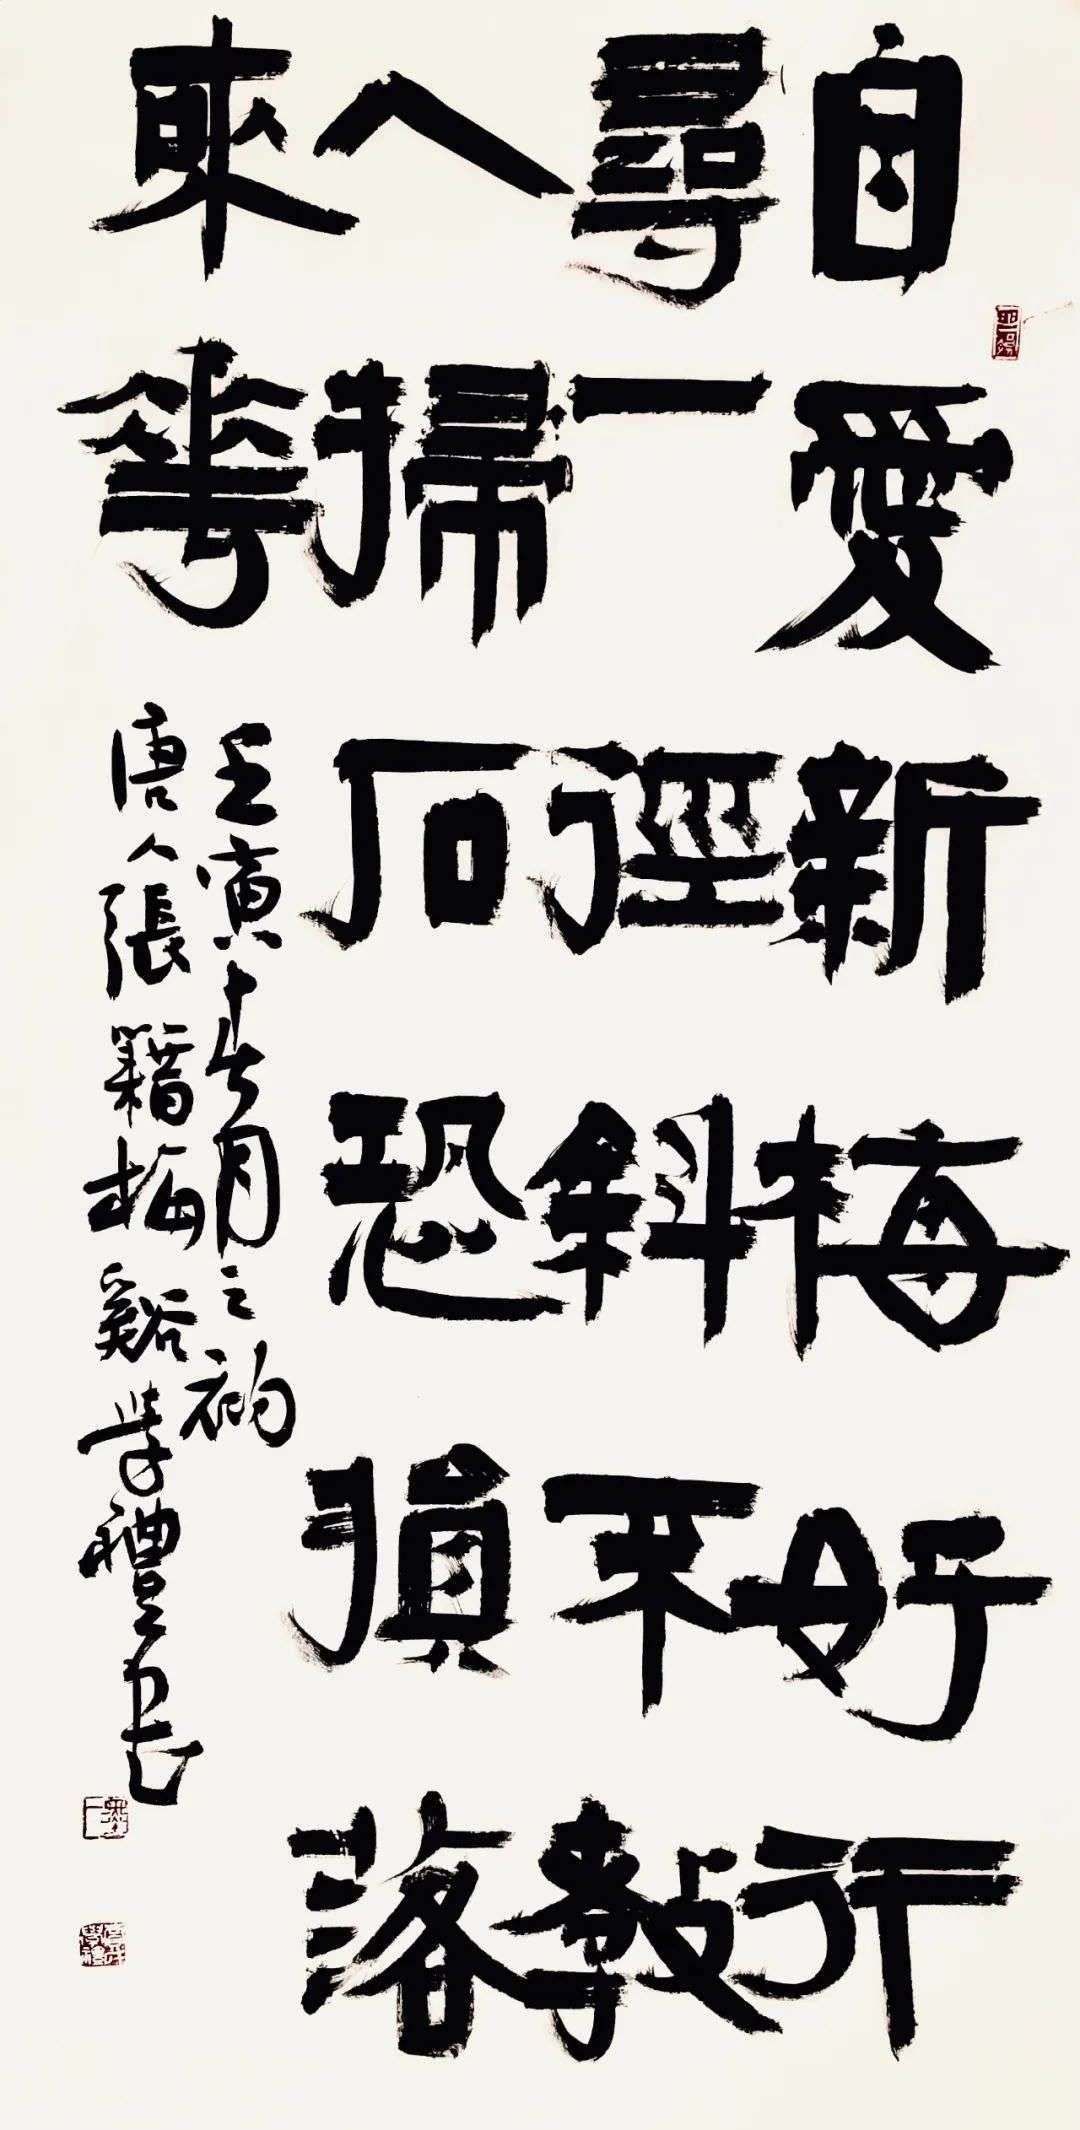 自愛新梅好行
尋一徑斜不教
人掃石恐損落
來華
壬寅十月之初
唐人張籍梅谿學禮書